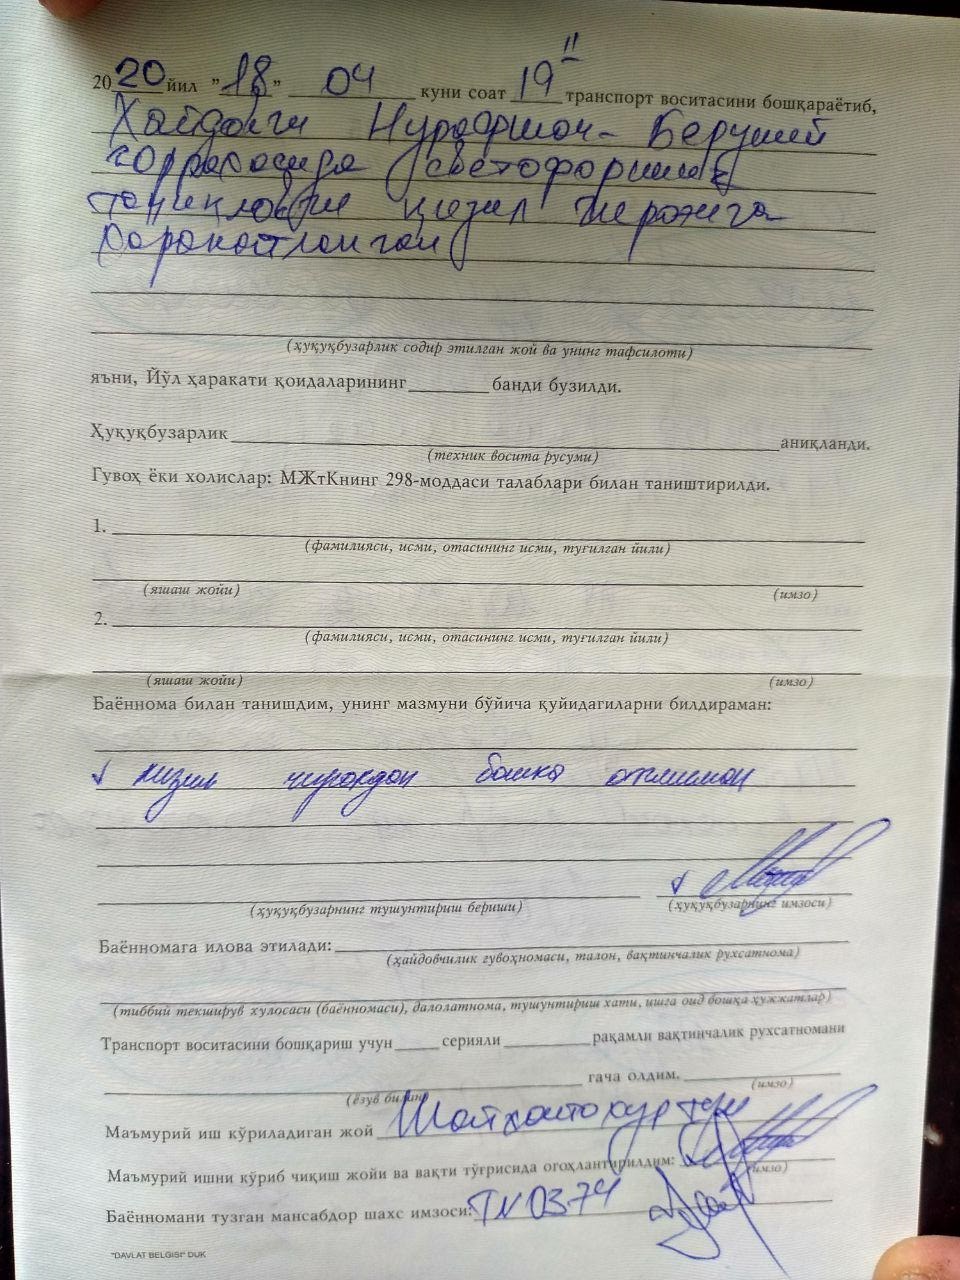 2020 йил "18" 04 куни соат 19 11 транспорт воситасини бошқараётиб,
Нурафшон - Беруний
чоррахасида светофорнинг
тақиқловчи қизил чироғига
харакатланган
(ҳуқуқбузарлик содир этилган жой ва унинг тафсилоти)
яъни, Йўл ҳаракати қоидаларининг______банди бузилди.
Ҳуқуқбузарлик______аниқланди.
(техник восита русуми)
Гувоҳ ёки холислар: МЖтКнинг 298-моддаси талаблари билан таништирилди.
1.
(фамилияси, исми, отасининг исми, туғилган йили)
(яшаш жойи) (имзо)
2.
(фамилияси, исми, отасининг исми, туғилган йили)
(яшаш жойи) (имзо)
Баённома билан танишдим, унинг мазмуни бўйича қуйидагиларни билдираман:
қизил чирокдан бошка
(ҳуқуқбузарнинг тушунтириш бериши) (ҳуқуқбузарнинг имзоси)
Баённомага илова этилади:
(ҳайдовчилик гувоҳномаси, талон, вақтинчалик рухсатнома)
(тиббий текширув хулосаси (баённомаси), далолатнома, тушунтириш хати, ишга оид бошқа ҳужжатлар)
Транспорт воситасини бошқариш учун_____серияли_____рақамли вақтинчалик рухсатномани
гача олдим.
(ёзув билан) (имзо)
Маъмурий иш кўриладиган жой Шайхонтохур туман
Маъмурий ишни кўриб чиқиш жойи ва вақти тўғрисида огоҳлантирилдим:
(имзо)
Баённомани тузган мансабдор шахс имзоси: TN 0374
"DAVLAT BELGISI" DUK